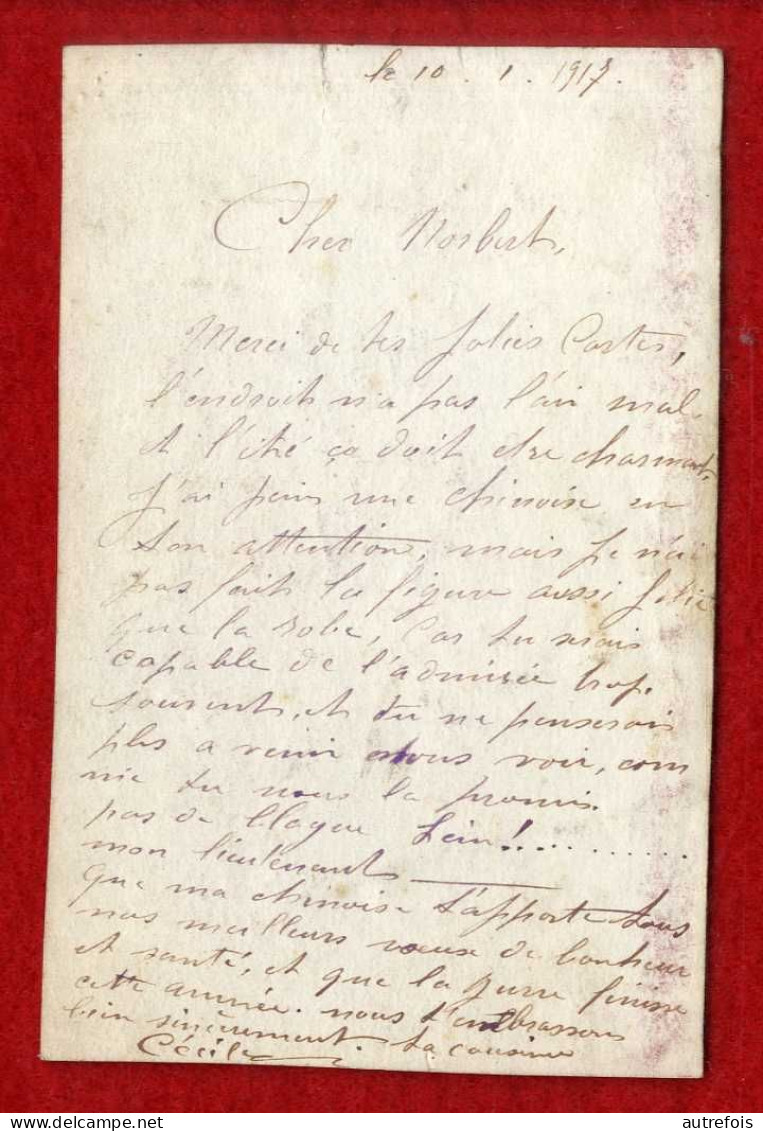 le 10 . 1 . 1917.
Cher Norbert,
Merci de tes jolies Cartes,
l'endroit n'a pas l'air mal
et l'été ça doit être charmant,
j'ai peins une chinoise en
ton attention, mais je n'ai
pas fait la figure aussi jolie
que la robe, Car tu serais
capable de l'admirée trop
souvent, et tu ne penserais
plus a venir nous voir, com
me tu nous la promis.
pas de blague hein!..........
mon lieutenant
que ma chinoise t'apporte tous
nos meilleurs voeux de bonheur
et santé, et que la guerre finisse
cette année. nous t'embrassons
bien sincèrement. ta cousine
Cécile
autrefois
delcampe.net